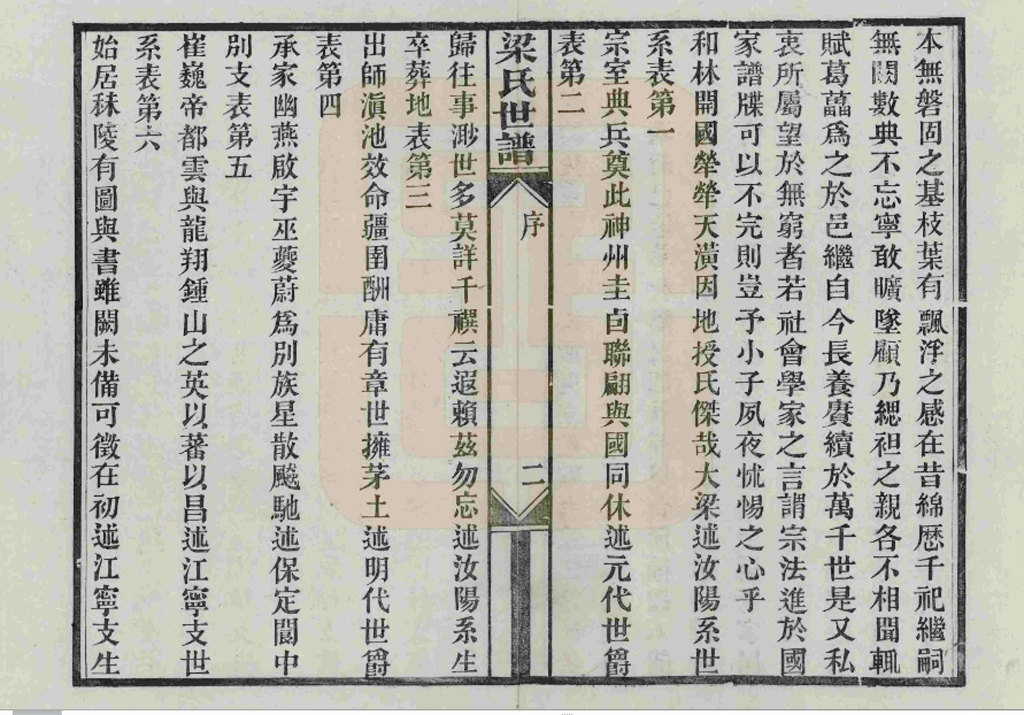 本無磐固之基枝葉有飄浮之感在昔綿歷千祀繼嗣
無闕數典不忘寧敢曠墜顧乃緦袒之親各不相聞輒
賦葛藟爲之於邑繼自今長養賡續於萬千世是又私
衷所屬望於無窮者若社會學家之言謂宗法進於國
家譜牒可以不完則豈予小子夙夜怵惕之心乎
和林開國犖犖天潢因地授氏傑哉大梁述汝陽系世
系表第一
宗室典兵奠此神州圭卣聯翩與國同休述元代世爵
表第二
梁氏世譜
序
二
歸往事渺世多莫詳千禩云遐賴茲勿忘述汝陽系生
卒葬地表第三
出師滇池效命疆圉酬庸有章世擁茅土述明代世爵
表第四
承家幽燕啟宇巫夔蔚爲別族星散飈馳述保定閬中
別支表第五
崔巍帝都雲與龍翔鍾山之英以蕃以昌述江寧支世
系表第六
始居秣陵有圖與書雖闕未備可徵在初述江寧支生